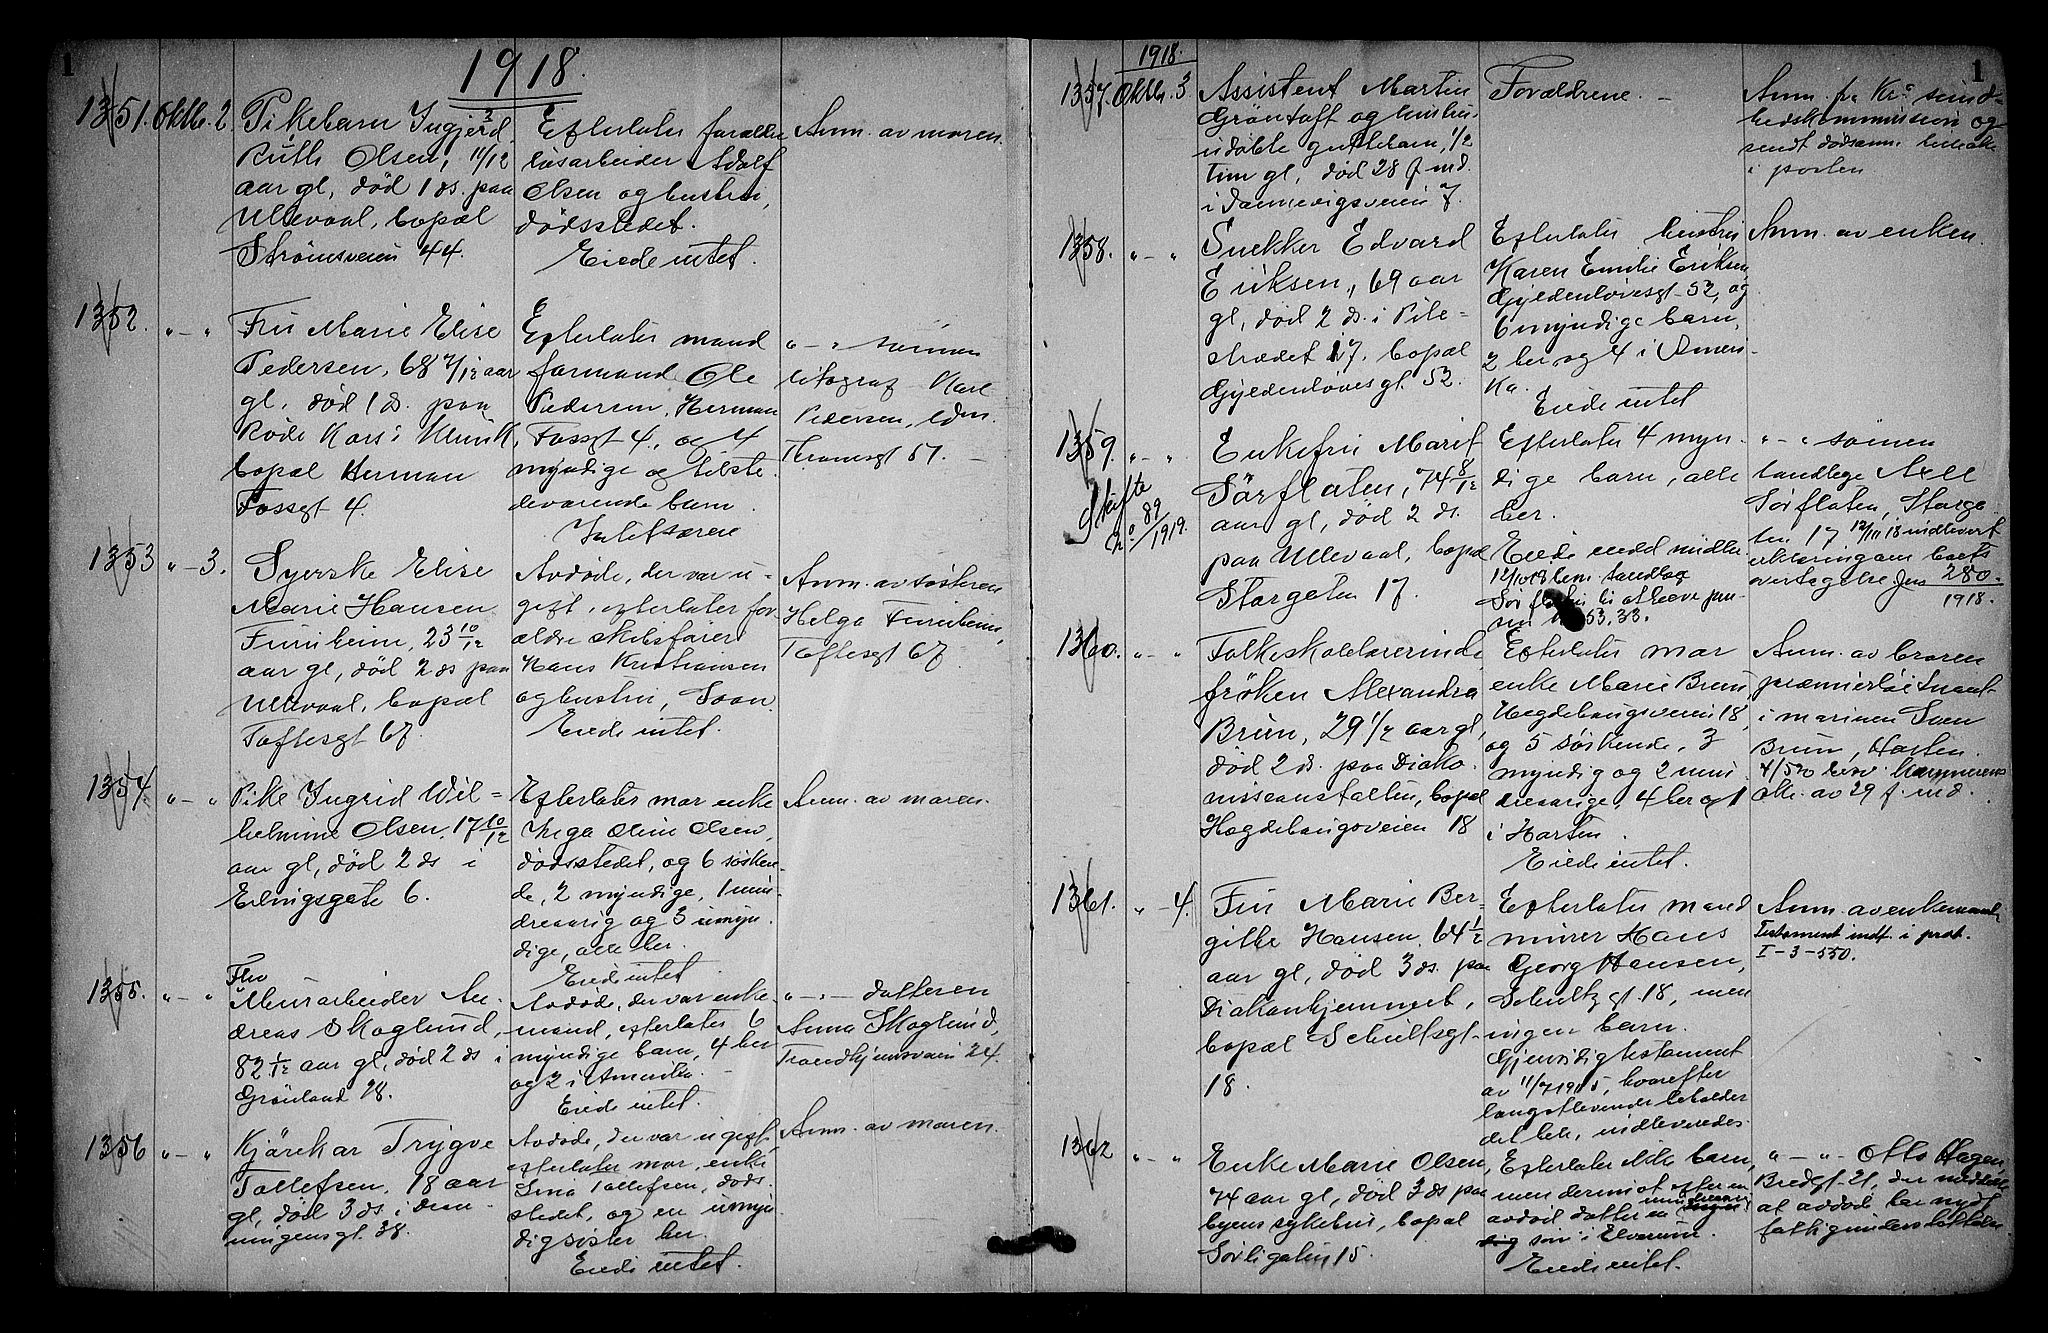 1
1918.
1351. Oktb. 2
Pikebarn Ingjerd
Ruth Olsen, 11/12
aar gl, död 1 ds. paa
Ullevaal, bopæl
Strömsveien 44.
Efterlater forældre
løsarbeider Adolf
Olsen og hustru,
dödsstedet.
Eiede intet.
Anm. av moren.
1352. " - "
Fru Marie Elise
Pedersen, 68 7/12 aar
gl, död 1 ds. paa
Röde Kors' Klinik,
bopæl Herman
Fossgt 4.
Efterlater mand
formand Ole
Pedersen, Herman
Fossgt 4, og 4
myndige og tilste-
deværende barn.
" - " sönnen
litograf Karl
Pedersen, Edv.
1353 " - 3.
Syerske Elise
Marie Hansen
Furuheim, 23 10/12
aar gl, död 2 ds paa
Ullevaal, bopæl
Toftesgt 67.
Avdöde, der var u-
gift, efterlater for-
ældre skibsförer
Hans Kristiansen
og hustru, Soon.
Eiede intet.
Anm. av søsteren
Helga Furuheim,
Toftesgt 67.
1354 " - "
Pike Ingrid Wil-
helmine Olsen, 17 10/12
aar gl, död 2 ds i
Erlingsgate 6.
Efterlater mor enke
Inga Oline Olsen,
dödsstedet, og 6 søsken-
de, 2 myndige, 1 min-
dreaarig og 3 umyn-
dige, alle her.
Eiede intet.
Anm. av moren.
1355. " - "
Fhv
Murarbeider An-
dreas Skoglund,
82 1/12 aar gl, död 2 ds i
Grönland 28.
Avdöde, der var enke-
mand, efterlater 6
myndige barn, 4 her
og 2 i Amerika.
Eiede intet.
" - " datteren
Anna Skoglund,
Trondhjemsveien 24.
1356 " - "
Kjörekar Trygve
Tollefsen, 18 aar
gl, död 3 ds i Dron-
ningensgt 38.
Avdöde, der var ugift,
efterlater mor, enke
Lina Tollefsen, döds-
stedet, og en umyn-
dig søster her.
Eiede intet.
Anm. av moren.
1918.
1
1357. Oktbr. 3
Assistent Martin
Gröntoft og hustrus
udöbte guttebarn, 1/2
time gl, död 28 f. md.
i Dannevigsveien 7.
Forældrene. -
Anm. fra Kr.a sund-
hedskommission og
sendt dödsanm. tilbake
i posten
1358. " - "
Snekker Edvard
Eriksen, 69 aar
gl, död 2 ds. i Pile-
strædet 17, bopæl
Gyldenlövesgt. 52.
Efterlater hustru
Karen Emilie Eriksen,
Gyldenlövesgt 52, og
6 myndige barn,
2 her og 4 i Ameri-
ka.
Eiede intet
Anm. av enken.
1359. " - "
Skifte
No 89/1919.
Enkefru Marit
Sörflaten, 74 8/12
aar gl, död 2 ds.
paa Ullevaal, bopæl
Storgaten 17.
Efterlater 4 myn-
dige barn, alle
her.
" - " sönnen
tandlege Axel
Sörflaten, Storga-
ten 17 12/10 18 indlevert
erklæring om boets
overtagelse. Jns 280
1918.
1360. " - "
Folkeskolelærerinde
fröken Alexandra
Brun, 29 1/2 aar gl,
död 2 ds. paa Diako-
nisseanstalten, bopæl
Hegdehaugsveien 18
Efterlater mor
enke Marie Brun,
Hegdehaugsveien 18,
og 5 söskende, 3
myndig og 2 min-
dreaarige, 4 her og 1
i Horten.
Eiede intet.
Anm. av broren
premierlöitnant
i marinen Sven
Brun, Horten.
1361. " - 4.
Fru Marie Ber-
githe Hansen, 64 1/2
aar gl, död 3 ds. paa
Diakonhjemmet,
bopæl Schultzgt.
18.
Efterlater mand
murer Hans
Georg Hansen,
Schultzgt 18, men
ingen barn.
Gjensidig testament
av 11/7 1915, hvorefter
længstlevende beholder
det hele, indleveredes.
Anm. av enkemand.
Testament indf. i prot.
I-3-550.
1362 " - "
Enke Marie Olsen,
74 aar gl, död 3 ds paa
byens sykehus, bopæl
Sörligaten 15.
Efterlater ikke barn,
men derimot efter en
avdöd datter en mindreaarig
sön i Elverum.
Eiede intet.
" - " Otto Hagen,
Bredgt 21, der meddelte
at avdöde har nydt